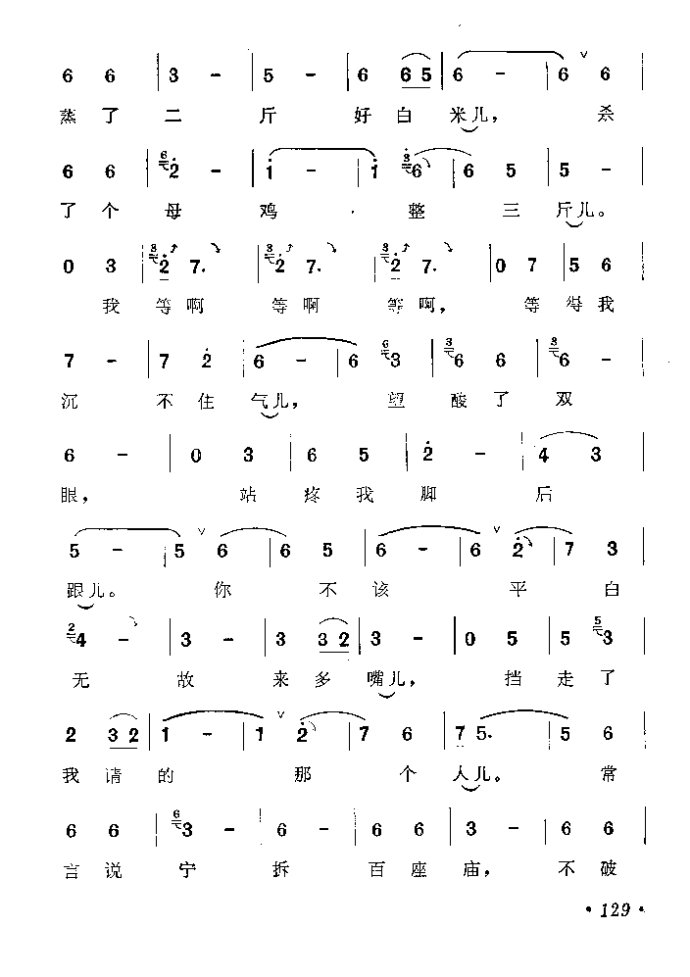 6 6 | 3 - | 5 - | 6 6 5 | 6 - | 6 ∨ 6 |
蒸了二斤好白米儿，杀
6 6 | 6 2 - | 1 - | 1 3 6 | 6 5 | 5 - |
了个母鸡·整三斤儿。
0 3 | 3 2 7. | 3 2 7. | 3 2 7. | 0 7 | 5 6 |
我等啊等啊等啊，等得我
7 - | 7 2 | 6 - | 6 6 3 | 3 6 6 | 3 6 - |
沉不住气儿，望酸了双
6 - | 0 3 | 6 5 | 2 - | 4 3 |
眼，站疼我脚后
5 - | 5 ∨ 6 | 6 5 | 6 - | 6 ∨ 2 | 7 3 |
跟儿。你不该平白
2 4 - | 3 - | 3 3 2 | 3 - | 0 5 | 5 5 3 |
无故来多嘴儿，挡走了
2 3 2 | 1 - | 1 ∨ 2 | 7 6 | 7 5. | 5 6 |
我请的那个人儿。常
6 6 | 6 3 - | 6 - | 6 6 | 3 - | 6 6 |
言说宁拆百座庙，不破
· 129 ·